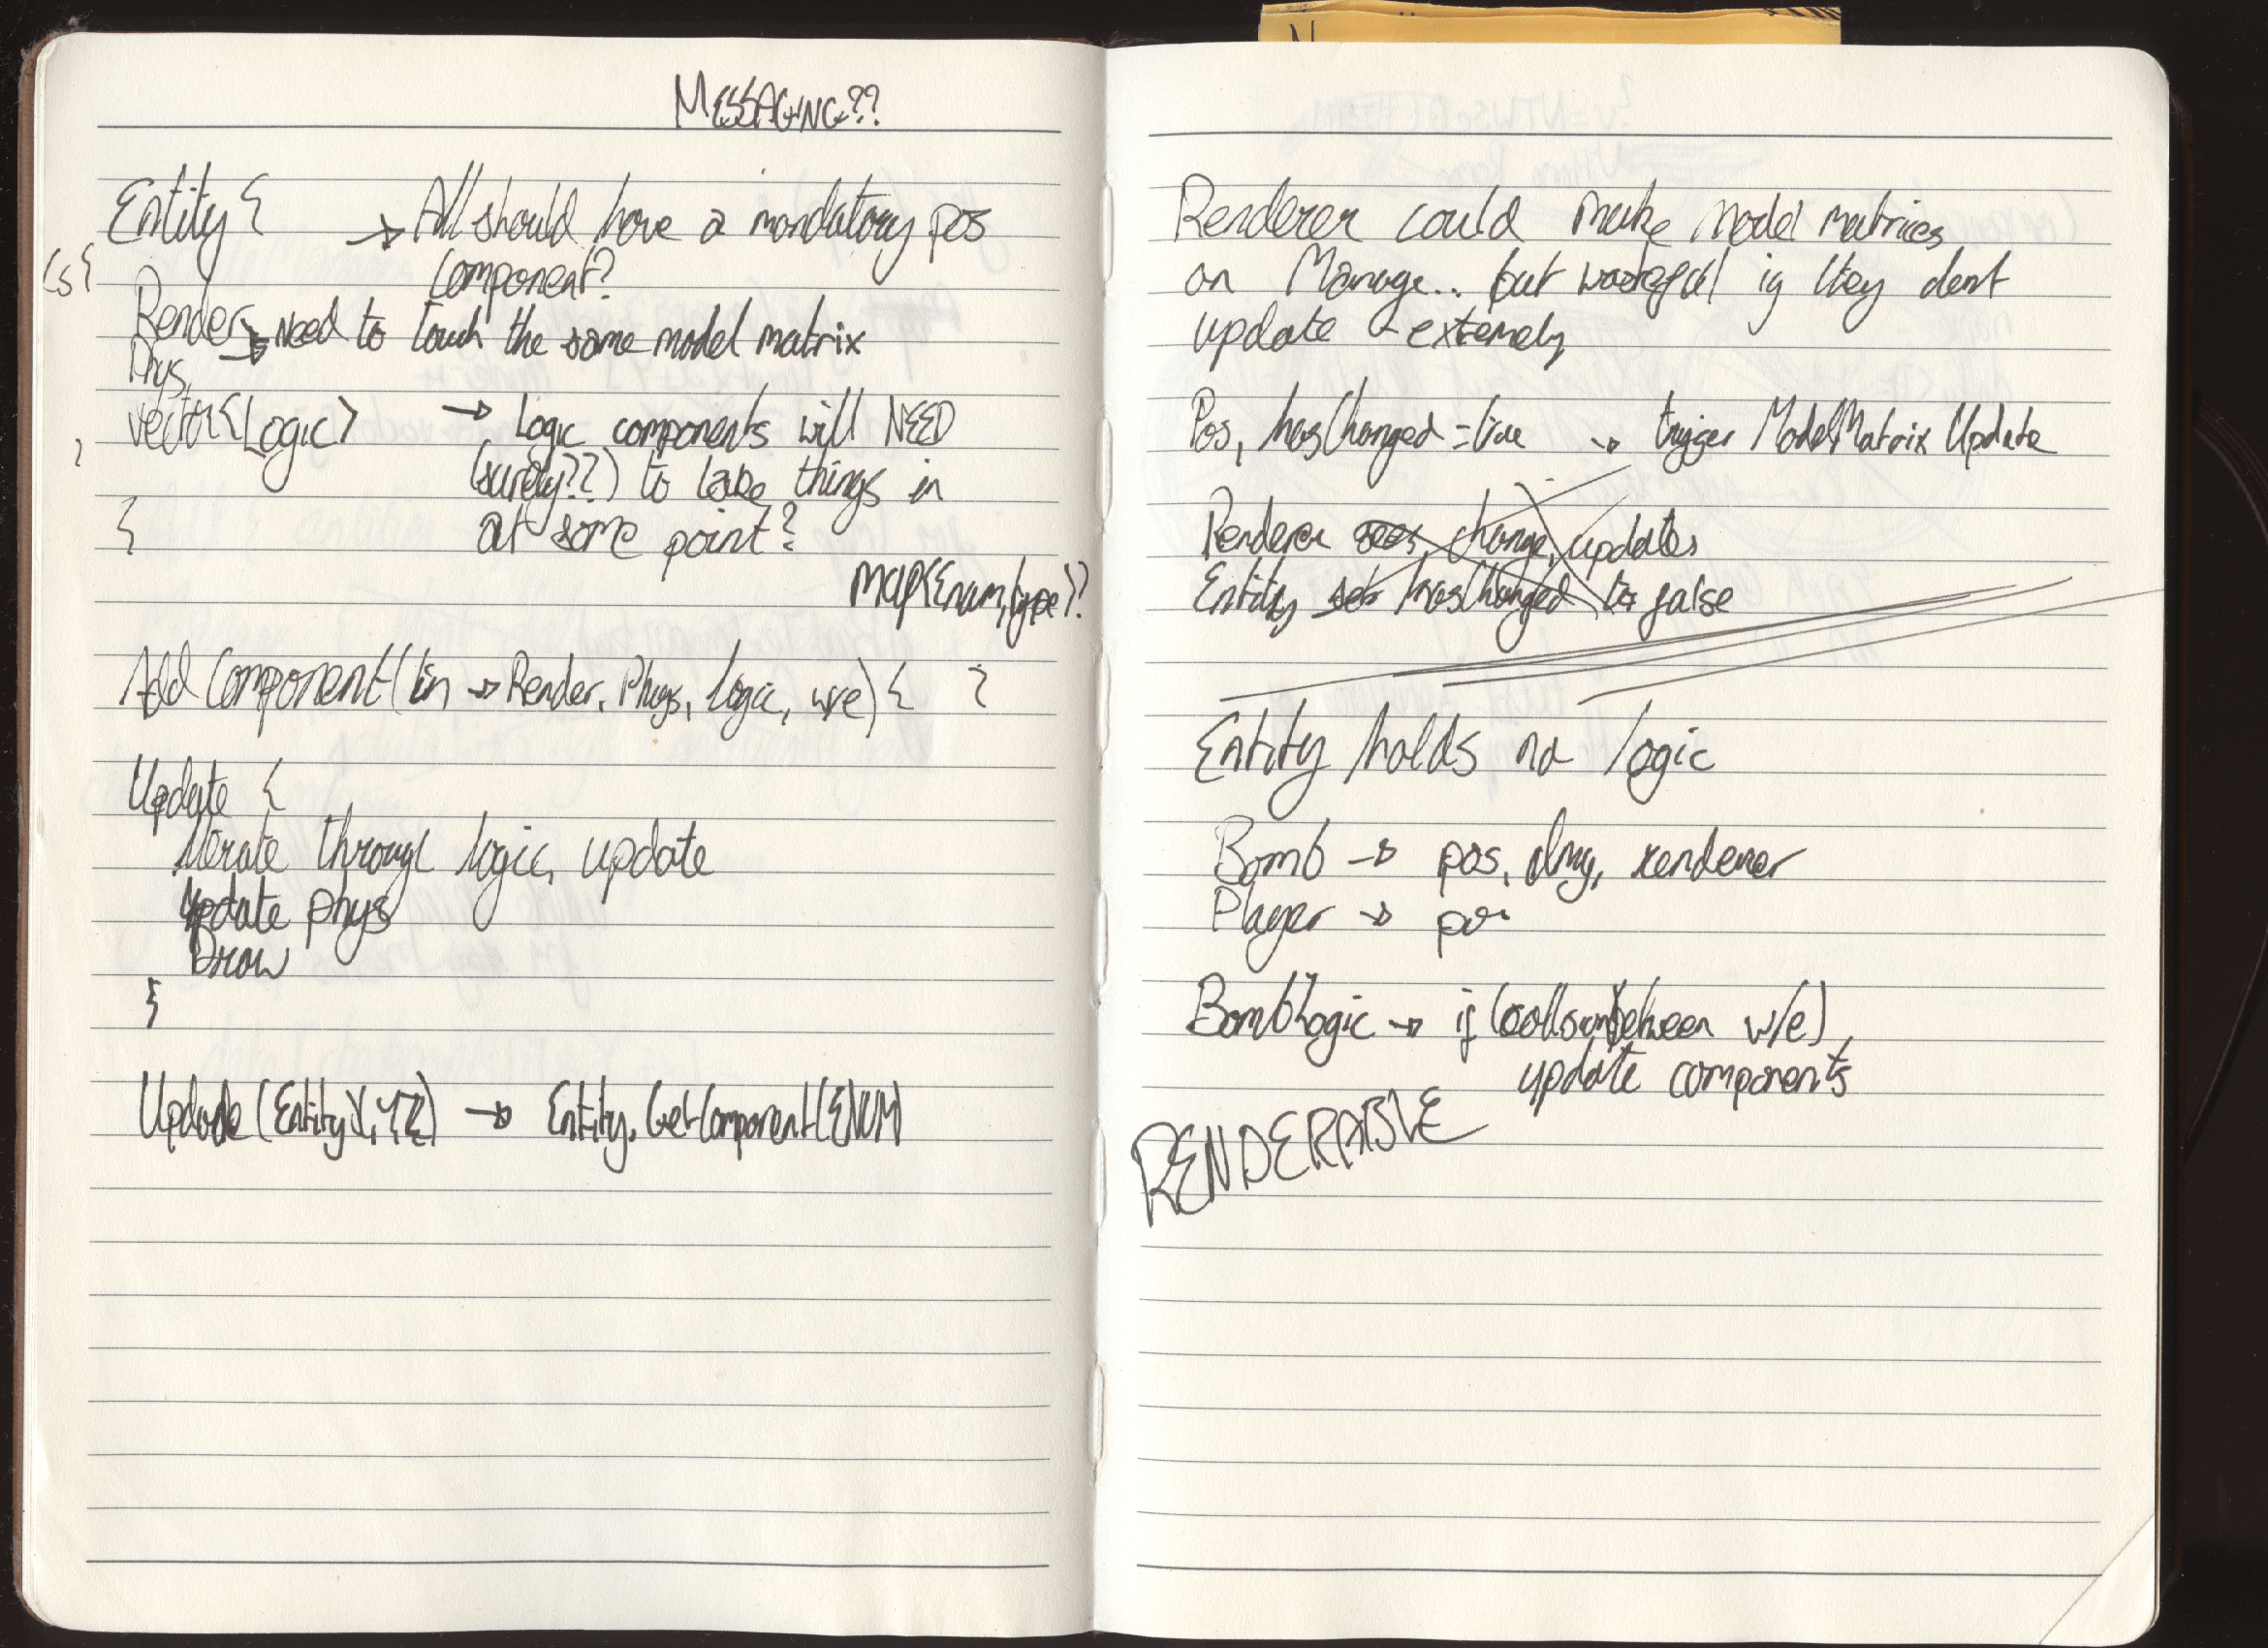 MESSAGING??
Entity {
→ All should have a mandatory pos
component?
Cs{
Render → Need to touch the same model matrix
Phys →
vector<Logic> → Logic components will NEED
(surely??) to take things in
at some point?
}
map<Enum, type>?
Add Component(in → Render, Phys, Logic, w/e) { }
Update {
iterate through logic, update
update phys
Draw
}
Update(Entity X, Y, Z) → Entity.GetComponent(ENUM)
Renderer could make model matrices
on Manage.. but wasteful if they dont
update - extremely
Pos, hasChanged = true → trigger ModelMatrix Update
Renderer sees change, updates
Entity sets hasChanged to false
Entity holds no logic
Bomb → pos, dmg, renderer
Player → pos
BombLogic → if (collision between w/e)
update components
RENDERABLE